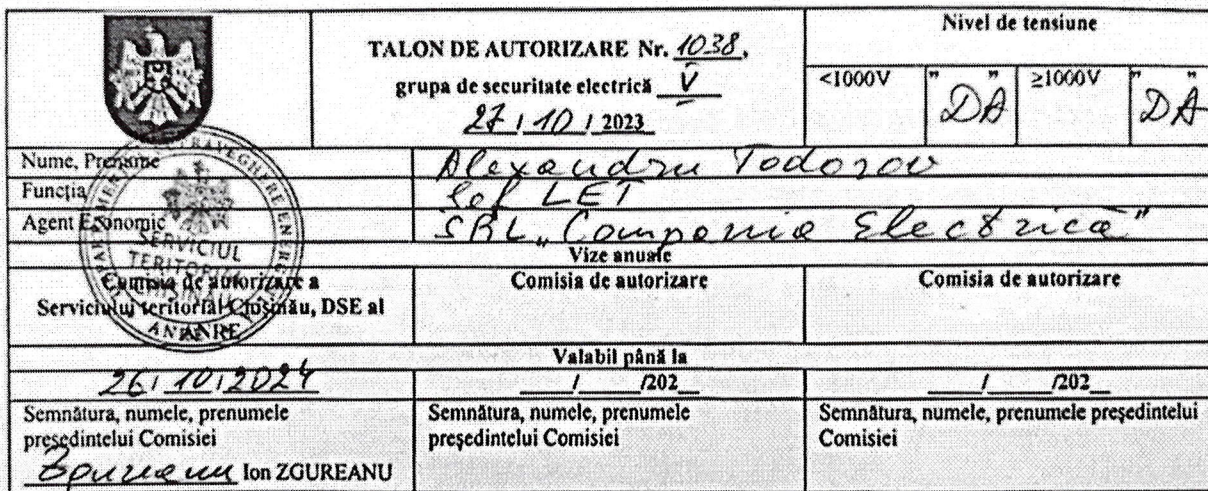 TALON DE AUTORIZARE Nr. 1038,
grupa de securitate electrică V
27 / 10 / 2023
Nivel de tensiune
<1000V " DA " ≥1000V " DA "
Nume, Prenume Alexandru Todorov
Funcția Șef LET
Agent Economic SRL „Compania Electrică"
Vize anuale
Comisia de autorizare a
Serviciului teritorial Chișinău, DSE al
ANRE
Comisia de autorizare
Comisia de autorizare
SERVICIUL
TERITORIAL
Valabil până la
26 / 10 / 2024
/ /202
/ /202
Semnătura, numele, prenumele
președintelui Comisiei
Zgureanu Ion ZGUREANU
Semnătura, numele, prenumele
președintelui Comisiei
Semnătura, numele, prenumele președintelui
Comisiei